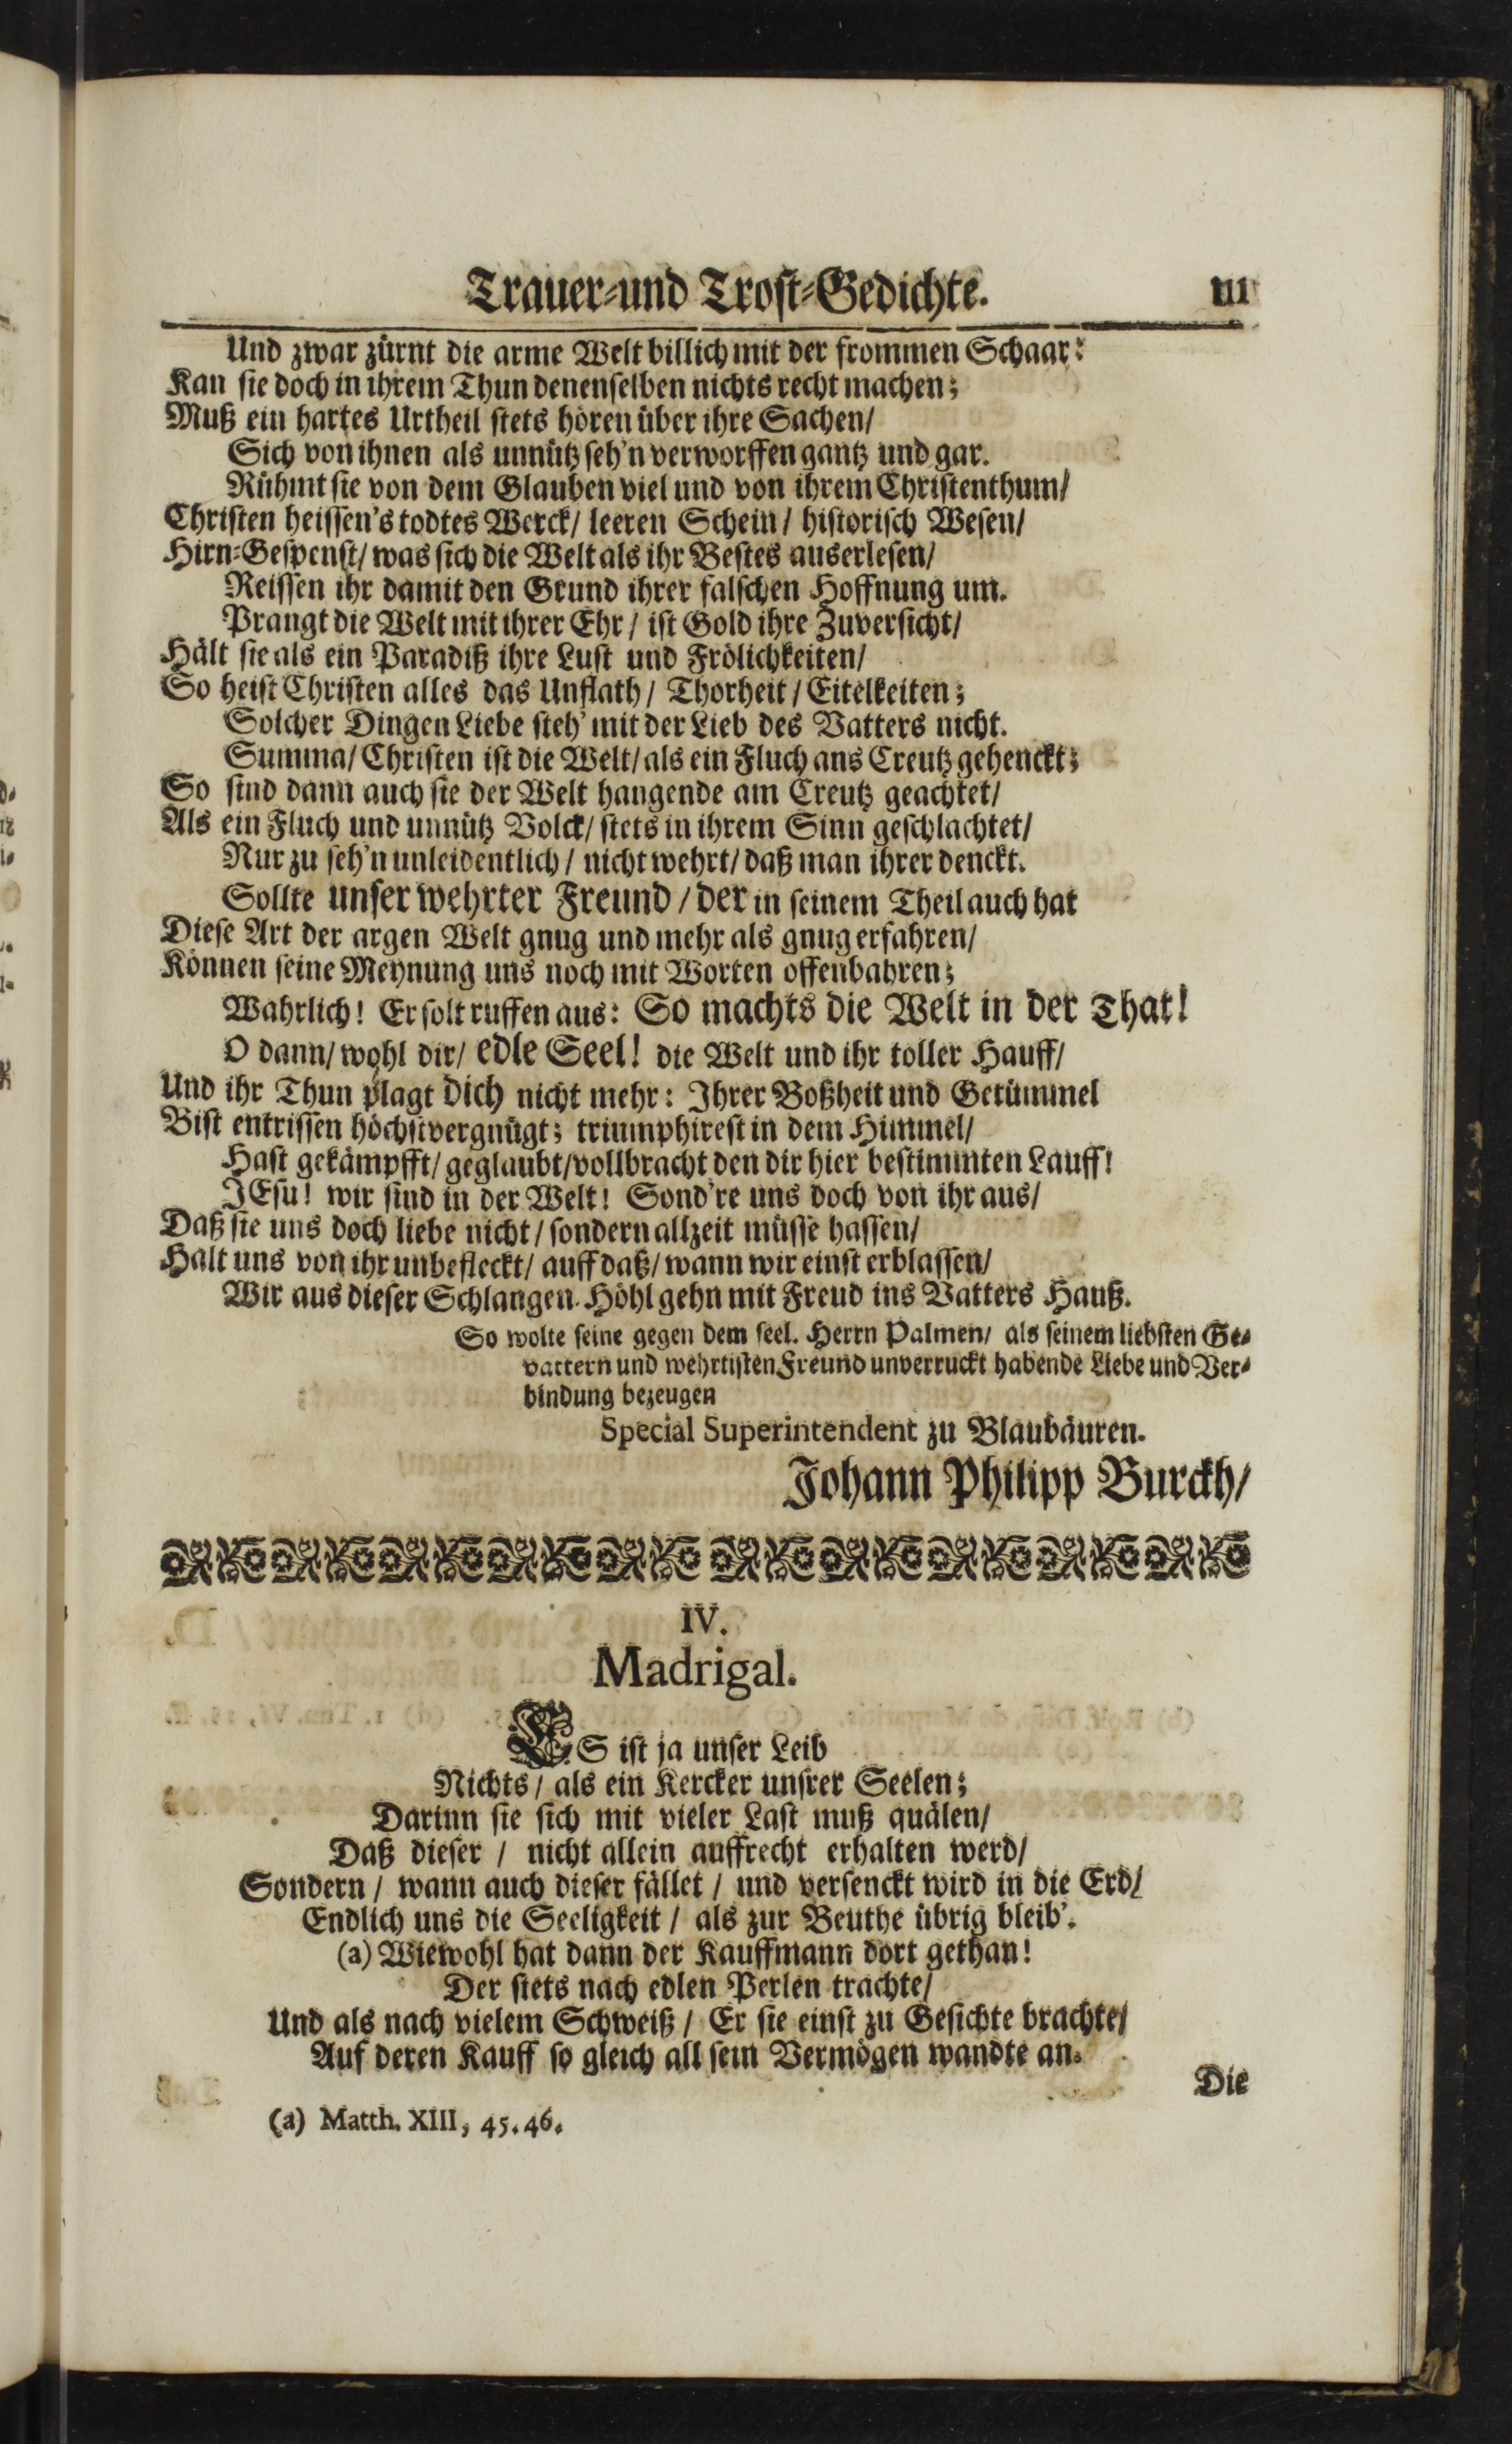 Trauer-und Trost-Gedichte. III
Und zwar zürnt die arme Welt billich mit der frommen Schaar:
Kan sie doch in ihrem Thun denenselben nichts recht machen;
Muß ein hartes Urtheil stets hören über ihre Sachen/
Sich von ihnen als unnütz seh'n verworffen gantz und gar.
Rühmt sie von dem Glauben viel und von ihrem Christenthum/
Christen heissen's todtes Werck/ leeren Schein/ historisch Wesen/
Hirn-Gespenst/ was sich die Welt als ihr Bestes auserlesen/
Reissen ihr damit den Grund ihrer falschen Hoffnung um.
Prangt die Welt mit ihrer Ehr/ ist Gold ihre Zuversicht/
Hält sie als ein Paradiß ihre Lust und Frölichkeiten/
So heist Christen alles das Unflath/ Thorheit/ Eitelkeiten;
Solcher Dingen Liebe steh' mit der Lieb des Vatters nicht.
Summa/ Christen ist die Welt/ als ein Fluch ans Creutz gehenckt;
So sind dann auch sie der Welt hangende am Creutz geachtet/
Als ein Fluch und unnütz Volck/ stets in ihrem Sinn geschlachtet/
Nur zu seh'n unleidentlich/ nicht wehrt/ daß man ihrer denckt.
Sollte unser wehrter Freund/ der in seinem Theil auch hat
Diese Art der argen Welt gnug und mehr als gnug erfahren/
Können seine Meynung uns noch mit Worten offenbahren;
Wahrlich! Er solt ruffen aus: So machts die Welt in der That!
O dann/ wohl dir/ edle Seel! die Welt und ihr toller Hauff/
Und ihr Thun plagt dich nicht mehr: Ihrer Boßheit und Getümmel
Bist entrissen höchstvergnügt; triumphirest in dem Himmel/
Hast gekämpfft/ geglaubt/ vollbracht den dir hier bestimmten Lauff!
JEsu! wir sind in der Welt! Sond're uns doch von ihr aus/
Daß sie uns doch liebe nicht/ sondern allzeit müsse hassen/
Halt uns von ihr unbefleckt/ auff daß/ wann wir einst erblassen/
Wir aus dieser Schlangen-Höhl gehn mit Freud ins Vatters Hauß.
So wolte seine gegen dem seel. Herrn Palmen/ als seinem liebsten Ge-
vattern und wehrtisten Freund unverruckt habende Liebe und Ver-
bindung bezeugen
Special Superintendent zu Blaubäuren.
Johann Philipp Burckh/
IV.
Madrigal.
ES ist ja unser Leib
Nichts/ als ein Kercker unsrer Seelen;
Darinn sie sich mit vieler Last muß quälen/
Daß dieser/ nicht allein auffrecht erhalten werd/
Sondern/ wann auch dieser fället/ und versenckt wird in die Erd/
Endlich uns die Seeligkeit/ als zur Beuthe übrig bleib'.
(a) Wiewohl hat dann der Kauffmann dort gethan!
Der stets nach edlen Perlen trachte/
Und als nach vielem Schweiß/ Er sie einst zu Gesichte brachte/
Auf deren Kauff so gleich all sein Vermögen wandte an.
Die
(a) Matth. XIII, 45. 46.